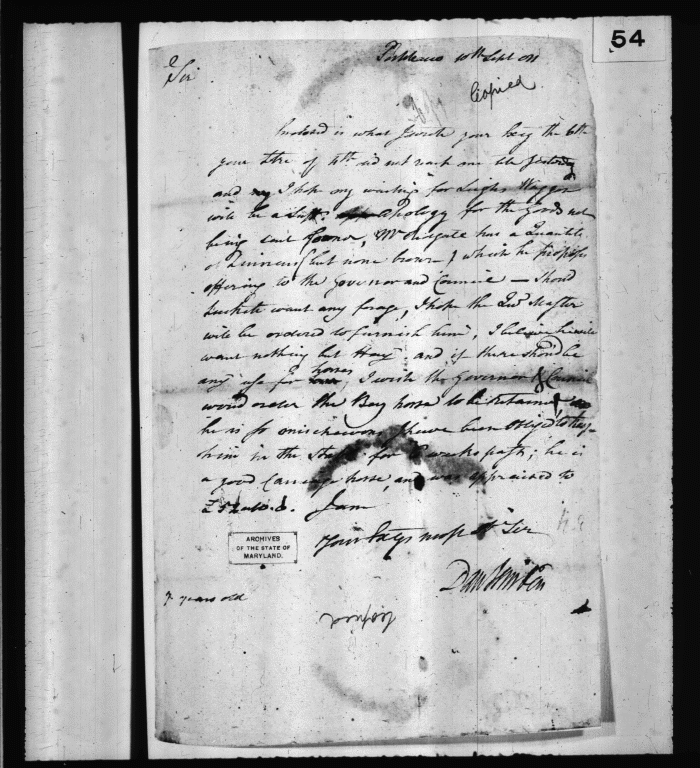 54
10th Sept
Sir
Copied
Inclosed is what I wrote your Excy the 6th
your Lttre of 4th did not reach me till yesterday
and I hope my waiting for Waggon
will be a Apology for the Goods not
being sent Mr Ridgate has a Quantity
of Linnens (but none brown) which he proposes
offering to the Governor and Council — Shoud
want any forage, I hope the Qur Master
will be ordered to furnish him, I believe he will
want nothing but Hay, and if there shoud be
any use for horses, I wish the Governor & Council
woud order the Bay horse to be retained
he is so mischievous I have been obliged to keep
him in the for weeks past; he is
a good Carriage horse, and was appraised to
I am
Your Excys most Sir
7 years old
ARCHIVES
OF THE STATE OF
MARYLAND.